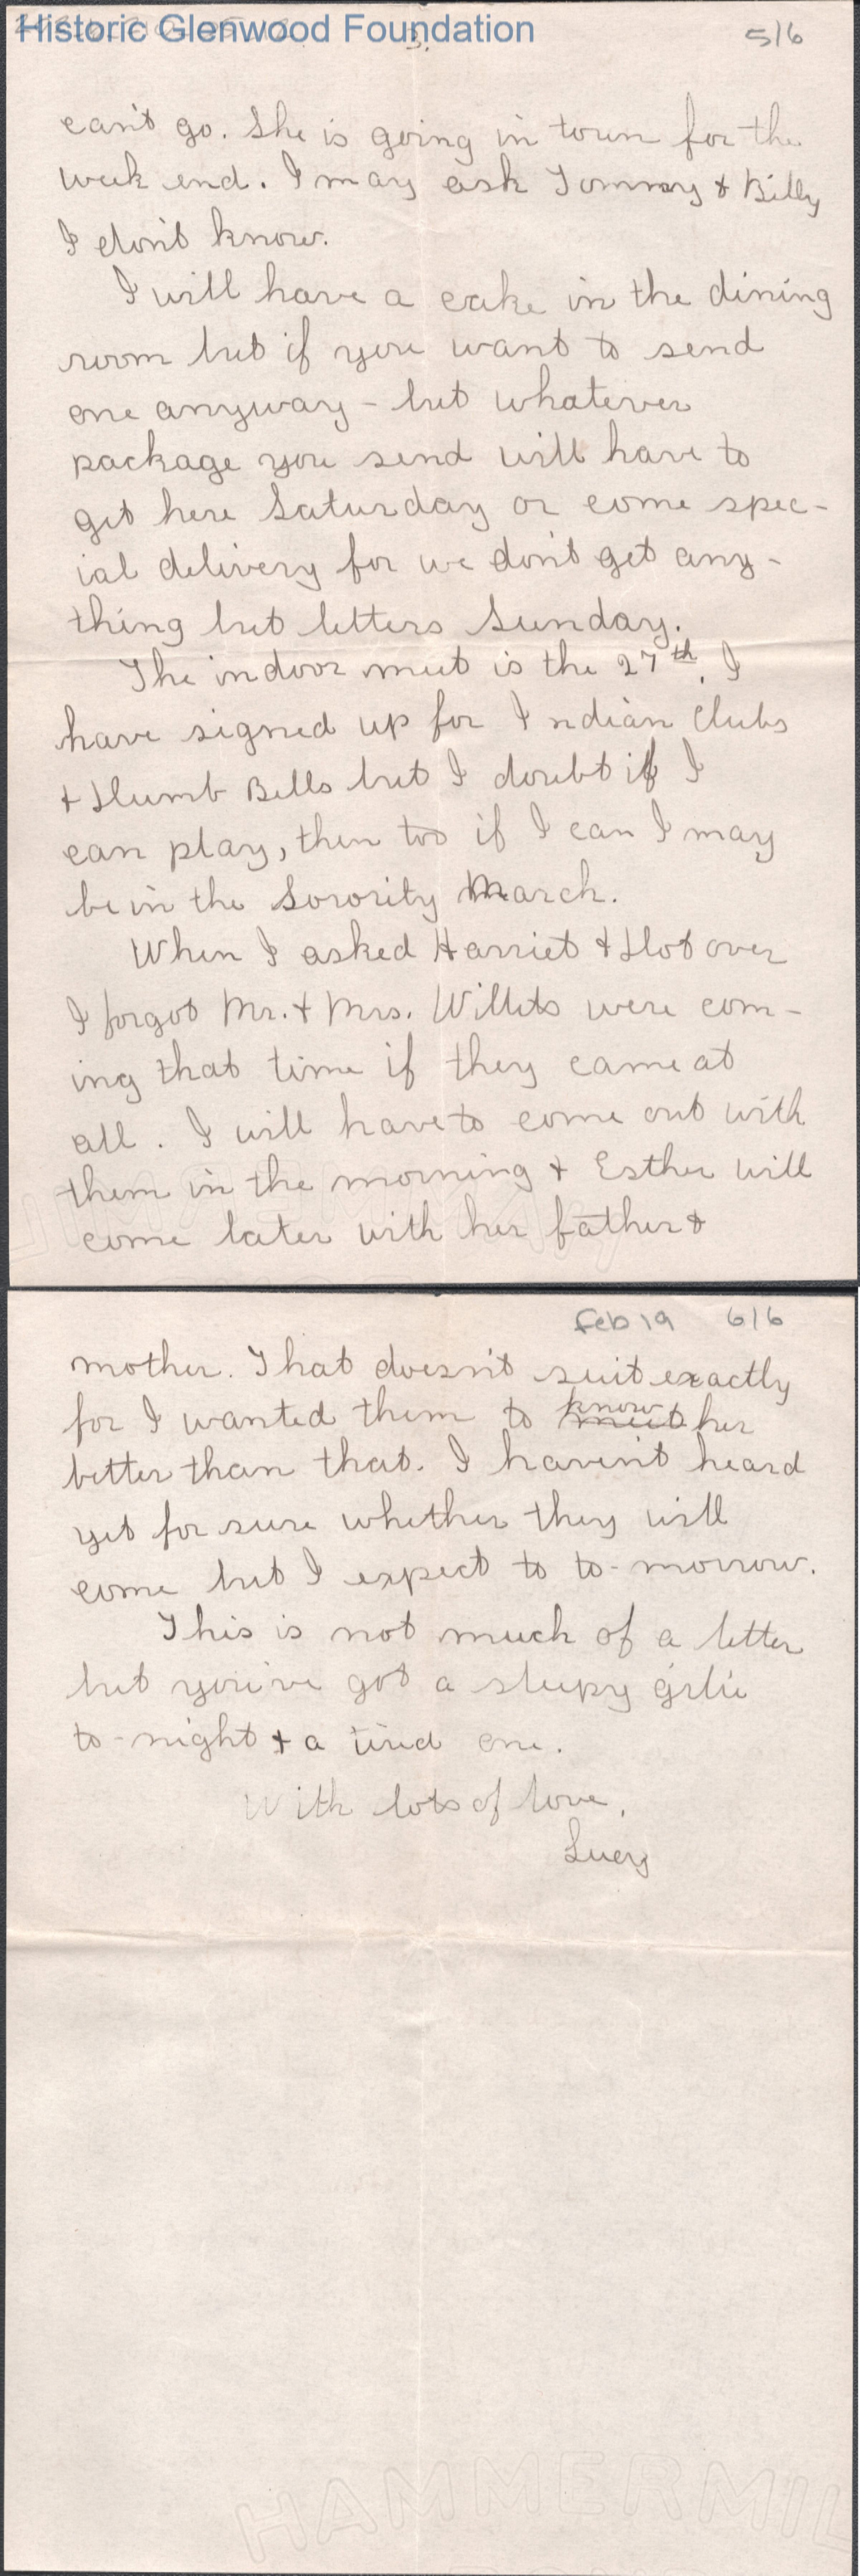 Historic Glenwood Foundation
3.
5/6
can't go. She is going in town for the
week end. I may ask Tommy & Billy
I don't know.
I will have a cake in the dining
room but if you want to send
one anyway - but whatever
package you send will have to
get here Saturday or come spec-
ial delivery for we don't get any-
thing but letters Sunday.
The indoor meet is the 27th. I
have signed up for Indian Clubs
& Dumb Bells but I doubt if I
can play, then too if I can I may
be in the Sorority March.
When I asked Harriet & Dot over
I forgot Mr. & Mrs. Willets were com-
ing that time if they came at
all. I will have to come out with
them in the morning & Esther will
come later with her father &
Feb 19 6/6
mother. That doesn't suit exactly
for I wanted them to meet know her
better than that. I haven't heard
yet for sure whether they will
come but I expect to to-morrow.
This is not much of a letter
but you've got a sleepy girlie
to-night & a tired one.
With lots of love,
Lucy
HAMMERMIL